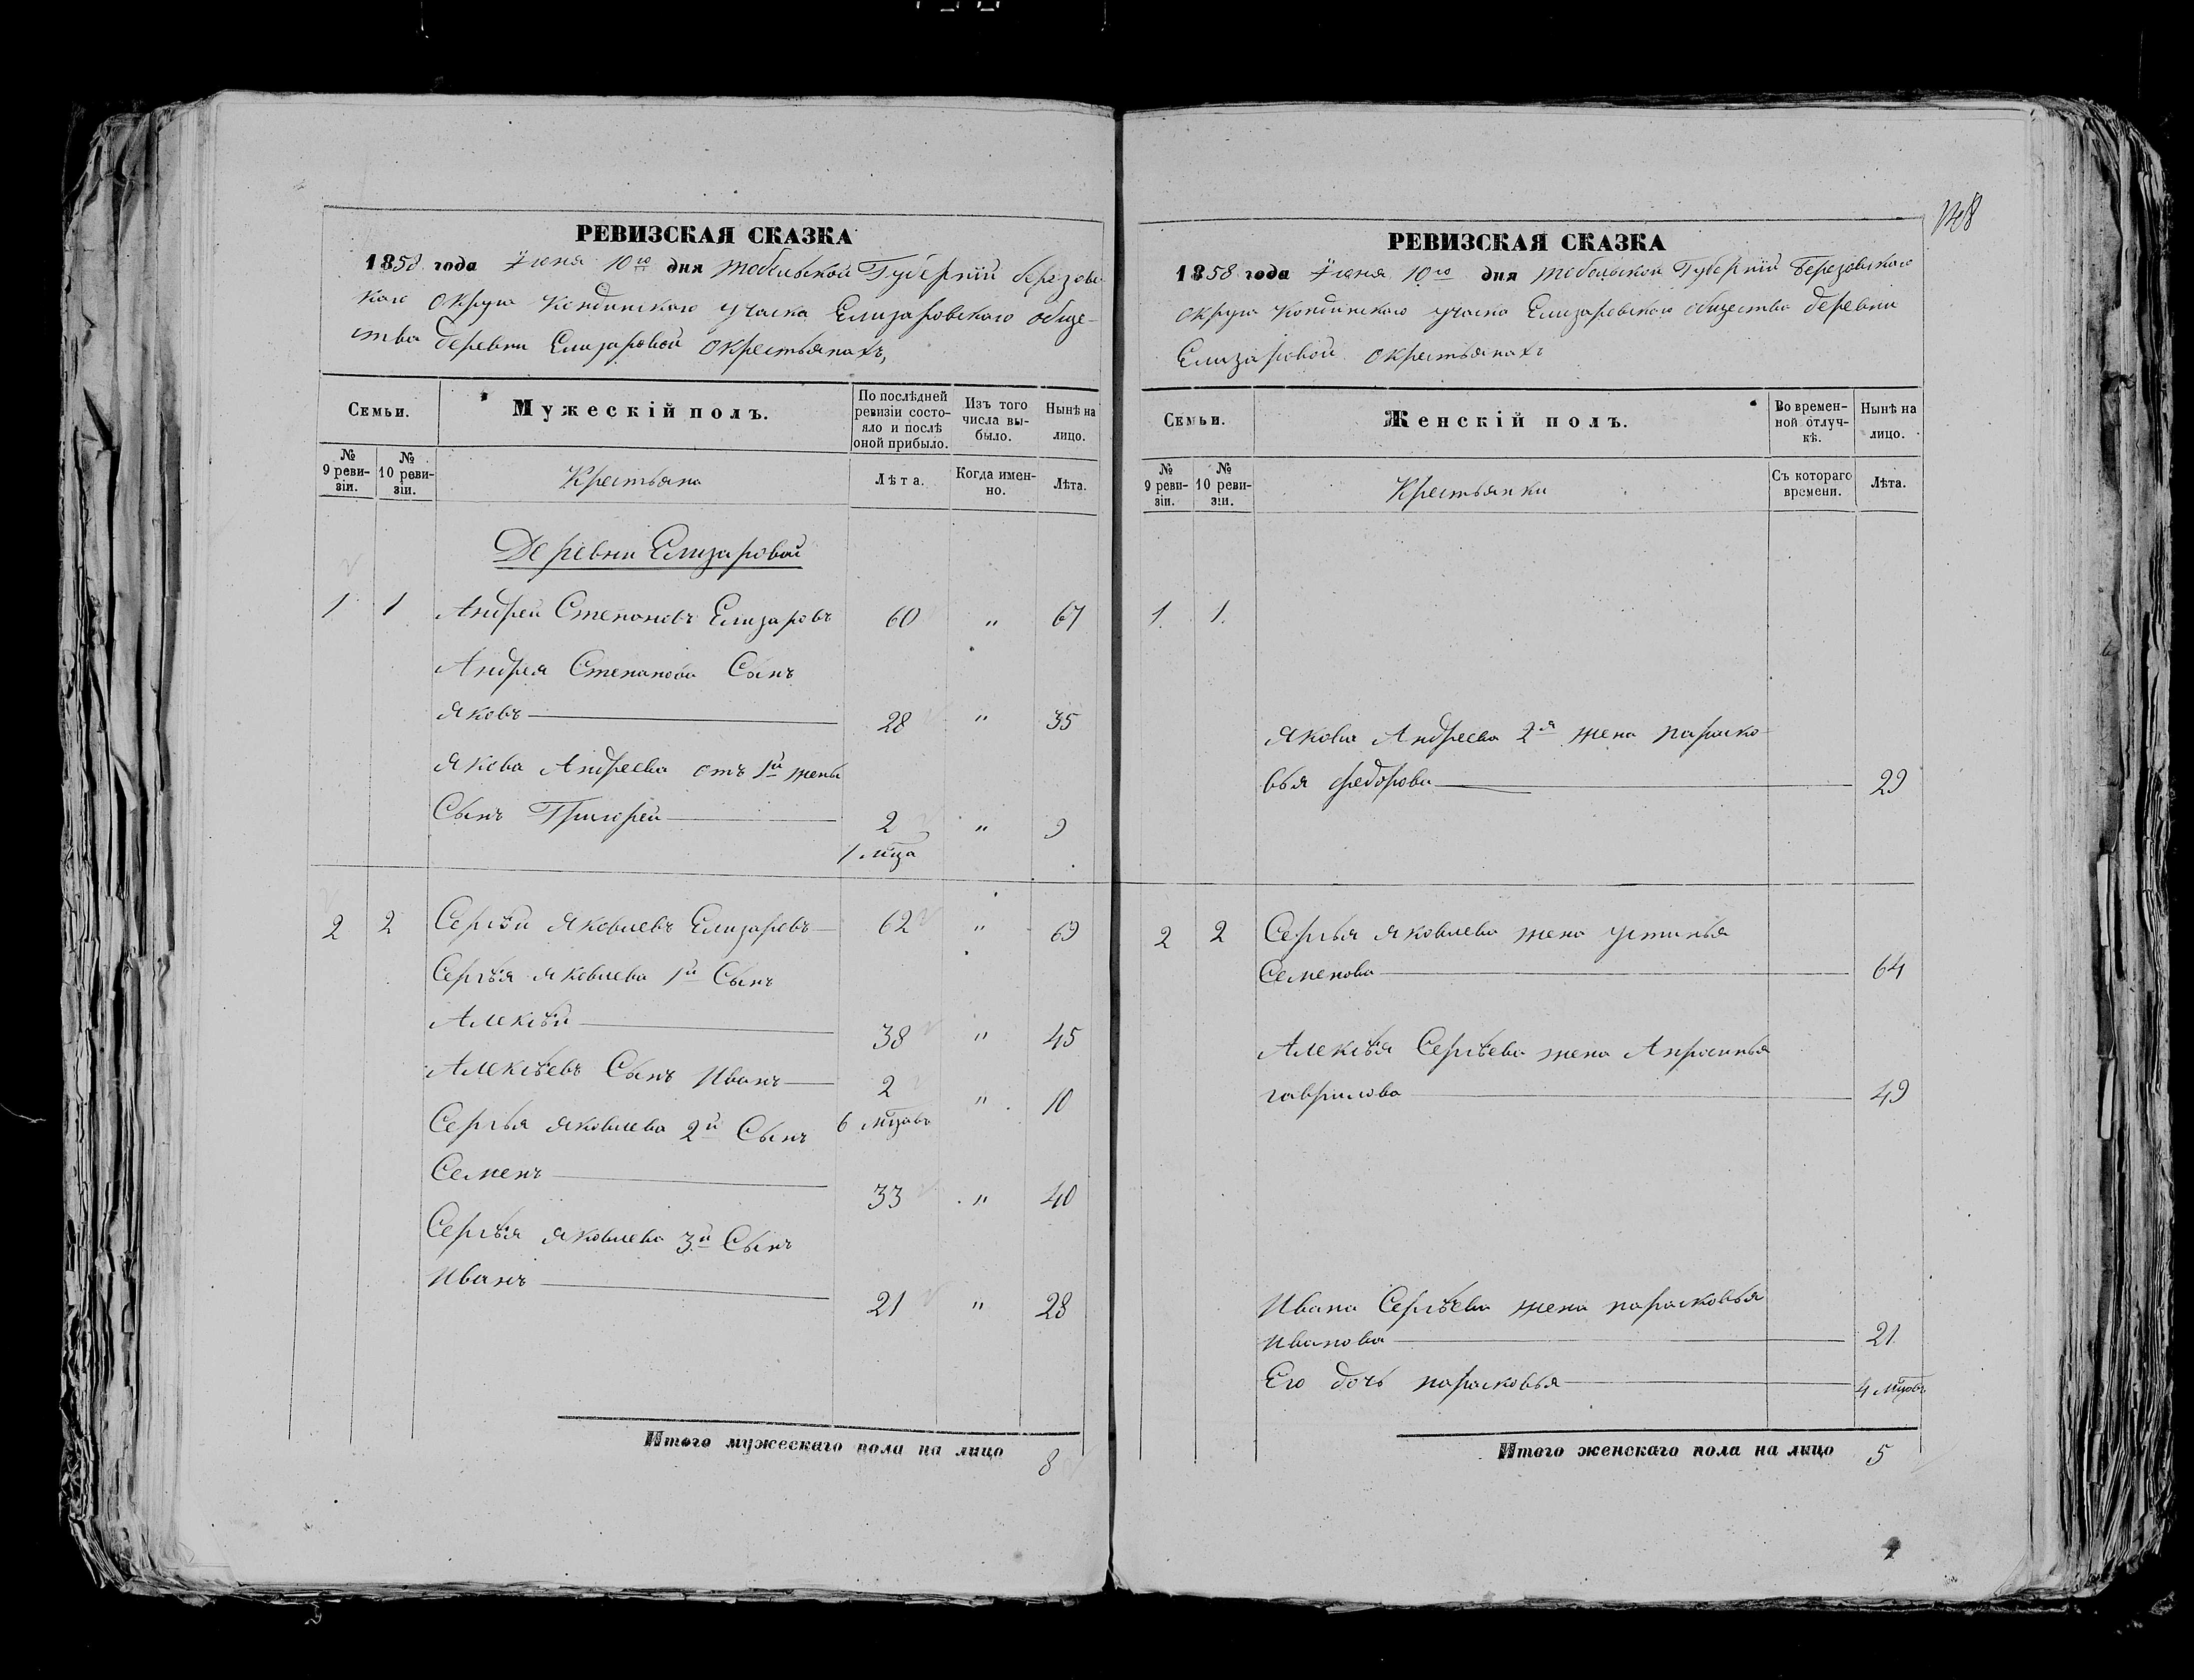 148
РЕВИЗСКАЯ СКАЗКА
1858 года Iюня 10го дня Тобольской Губернiи Березовс-
каго округа Кондинскаго участка Елизаровскаго обще-
ства деревни Елизаровой о крестьянахъ,
Семьи.
Мужескiй полъ.
По послѣдней ревизiи состо-
яло и послѣ оной прибыло.
Изъ того числа вы-
было.
Нынѣ на лицо.
№ 9 реви-
зiи.
№ 10 реви-
зiи.
Крестьяна
Лѣта.
Когда имен-
но.
Лѣта.
Деревни Елизаровой
1 1 Андрей Степановъ Елизаровъ 60 " 67
Андрея Степанова Сынъ
Яковъ 28 " 35
Якова Андреева отъ 1й жены
Сынъ Григорей 2 " 9
1 мца
2 2 Сергѣй Яковлевъ Елизаровъ 62 " 69
Сергѣя Яковлева 1й Сынъ
Алексѣй 38 " 45
Алексѣевъ Сынъ Иванъ 2 " 10
6 мцовъ
Сергѣя Яковлева 2й Сынъ
Семенъ 33 " 40
Сергѣя Яковлева 3й Сынъ
Иванъ 21 " 28
Итого мужескаго пола на лицо 8
РЕВИЗСКАЯ СКАЗКА
1858 года Iюня 10го дня Тобольской Губернiи Березовскаго
округа Кондинскаго участка Елизаровскаго общества деревни
Елизаровой о крестьянахъ
Семьи.
Женскiй полъ.
Во времен-
ной отлуч-
кѣ.
Нынѣ на лицо.
№ 9 реви-
зiи.
№ 10 реви-
зiи.
Крестьянки
Съ котораго времени.
Лѣта.
1 1
Якова Андреева 2я жена Параско-
вья Федорова 29
2 2 Сергѣя Яковлева жена Устинья
Семенова 64
Алексѣя Сергѣева жена
гаврилова 49
Ивана Сергѣева жена парасковья
Иванова 21
Его дочь парасковья 4 мцовъ
Итого женскаго пола на лицо 5